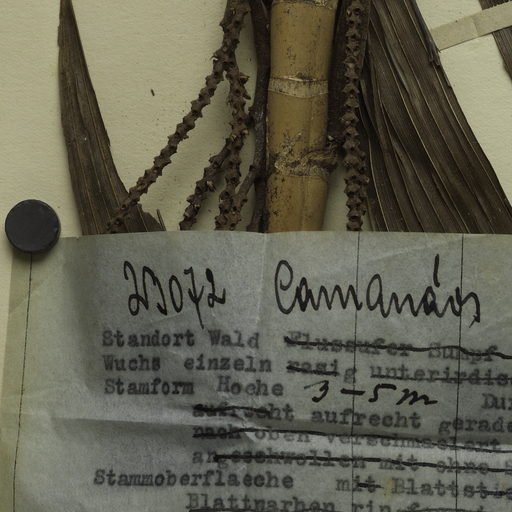 23072 Camanáos
Standort Wald Flussufer Sumpf
Wuchs einzeln rasig unterirdisc
Stamform Hoehe 3-5m Du
aufrecht aufrecht gerade
nach oben verschmaelert
angeschwollen mit ohne S
Stammoberflaeche mit Blattsti
Blattnarben